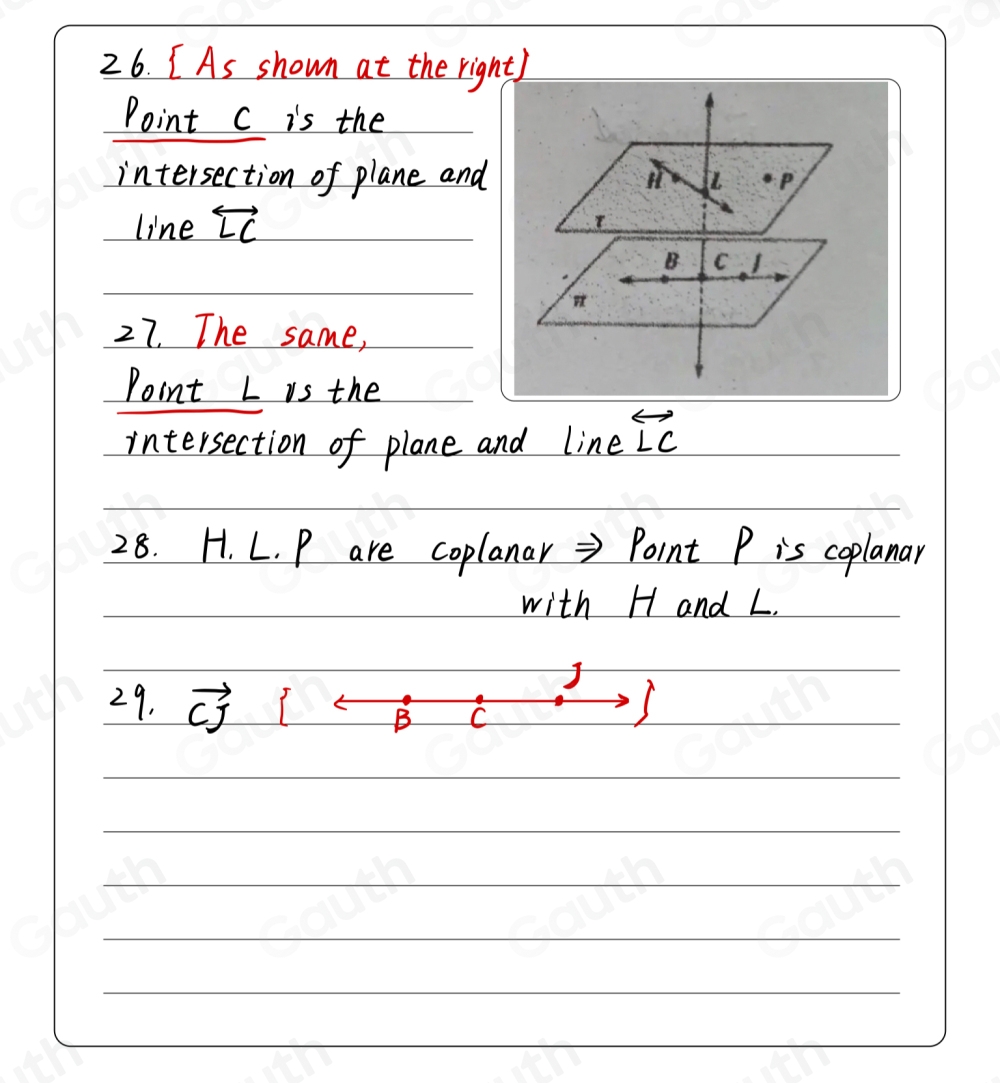 26. [As shown at the right]
Point C is the
intersection of plane and
line LC
H L P
T
B C J
π
27. The same,
Point L is the
intersection of plane and line LC
28. H. L. P are coplanar ⇒ Point P is coplanar
with H and L.
29. CJ [ B C J ]
Gauth